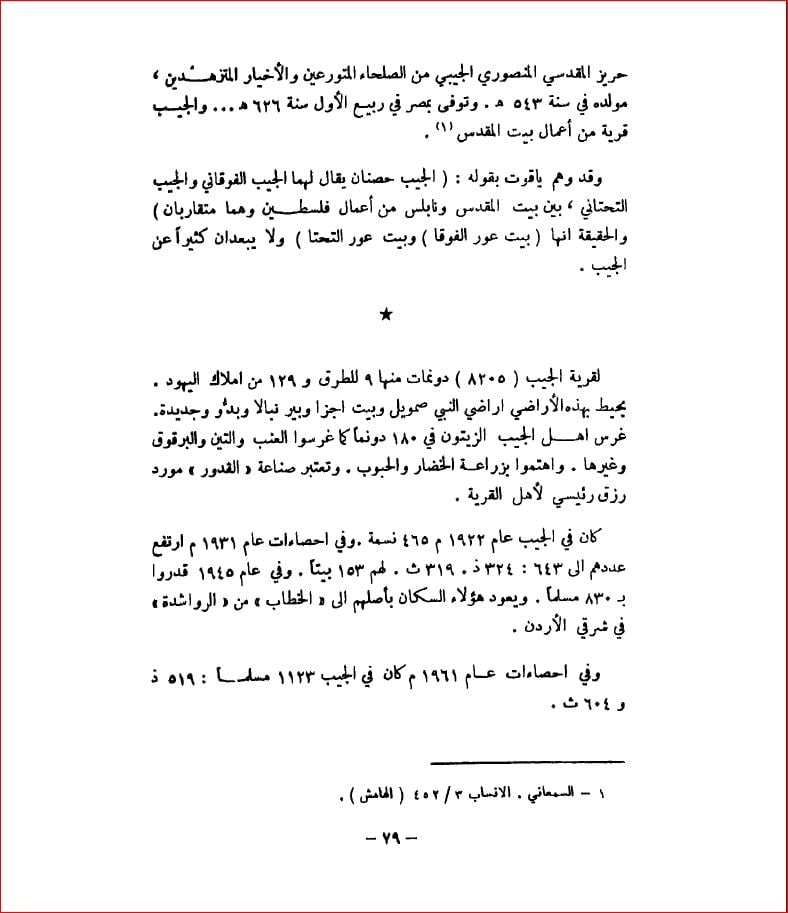 حريز المقدسي المنصوري الجيبي من الصلحاء المتورعين والأخيار المتزهدين ،
مولده في سنة ٥٤٣ هـ . وتوفى بمصر في ربيع الأول سنة ٦٢٦ هـ ... والجيب
قرية من أعمال بيت المقدس (١) .
وقد وهم ياقوت بقوله : ( الجيب حصنان يقال لهما الجيب الفوقاني والجيب
التحتاني ، بين بيت المقدس ونابلس من أعمال فلسطين وهما متقاربان )
والحقيقة انها ( بيت عور الفوقا ) وبيت عور التحتا ) ولا يبعدان كثيراً عن
الجيب .
★
لقرية الجيب ( ٨٢٠٥ ) دونمات منها ٩ للطرق و ١٢٩ من املاك اليهود .
يحيط بهذه الأراضي اراضي النبي صمويل وبيت اجزا وبير نبالا وبدُّو وجديدة.
غرس اهل الجيب الزيتون في ١٨٠ دونماً كما غرسوا العنب والتين والبرقوق
وغيرها . واهتموا بزراعة الخضار والحبوب . وتعتبر صناعة « القدور » مورد
رزق رئيسي لأهل القرية .
كان في الجيب عام ١٩٢٢ م ٤٦٥ نسمة . وفي احصاءات عام ١٩٣١ م ارتفع
عددهم الى ٦٤٣ : ٣٢٤ ذ . ٣١٩ ث . لهم ١٥٣ بيتاً . وفي عام ١٩٤٥ قدروا
بـ ٨٣٠ مسلماً . ويعود هؤلاء السكان بأصلهم الى « الخطاب » من « الرواشدة »
في شرقي الأردن .
وفي احصاءات عام ١٩٦١ م كان في الجيب ١١٢٣ مسلماً : ٥١٩ ذ
و ٦٠٤ ث .
١ – السمعاني . الانساب ٣ / ٤٥٢ ( الهامش ) .
– ٧٩ –